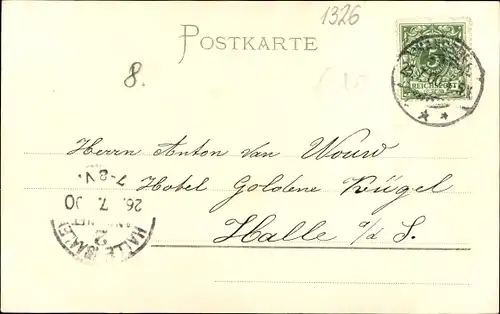 1326
POSTKARTE
8.
5
REICHSPOST
Herrn Anton van Wouw
Hotel Goldene Kugel
Halle a/d S.
7-8V.
26. 7. 00
HALLE (SAALE)
2